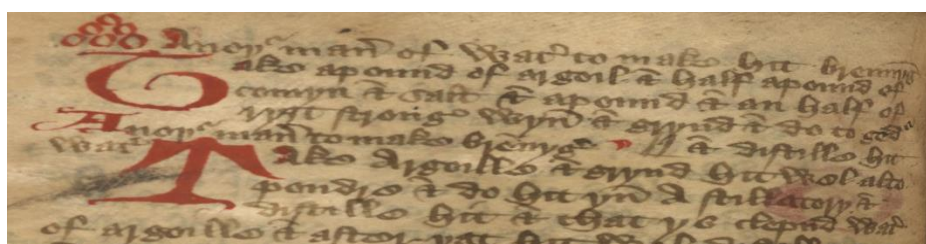 Anoyͬ man̄ of Watͬ to make hit brennyg
Take apound of argoil & half apound of
comyn & salt & apound & an half of
ryȝt strong wyn̄ & grynd & do to geder
Anoyͬ man̄ to make brēnyge & distille hit
watͬ
Take Argoille & grynd hit wel alto
poudre & do hit yn̄ A stillatory &
distille hit & that ys cleped watͬ
of argoille & after yat hit